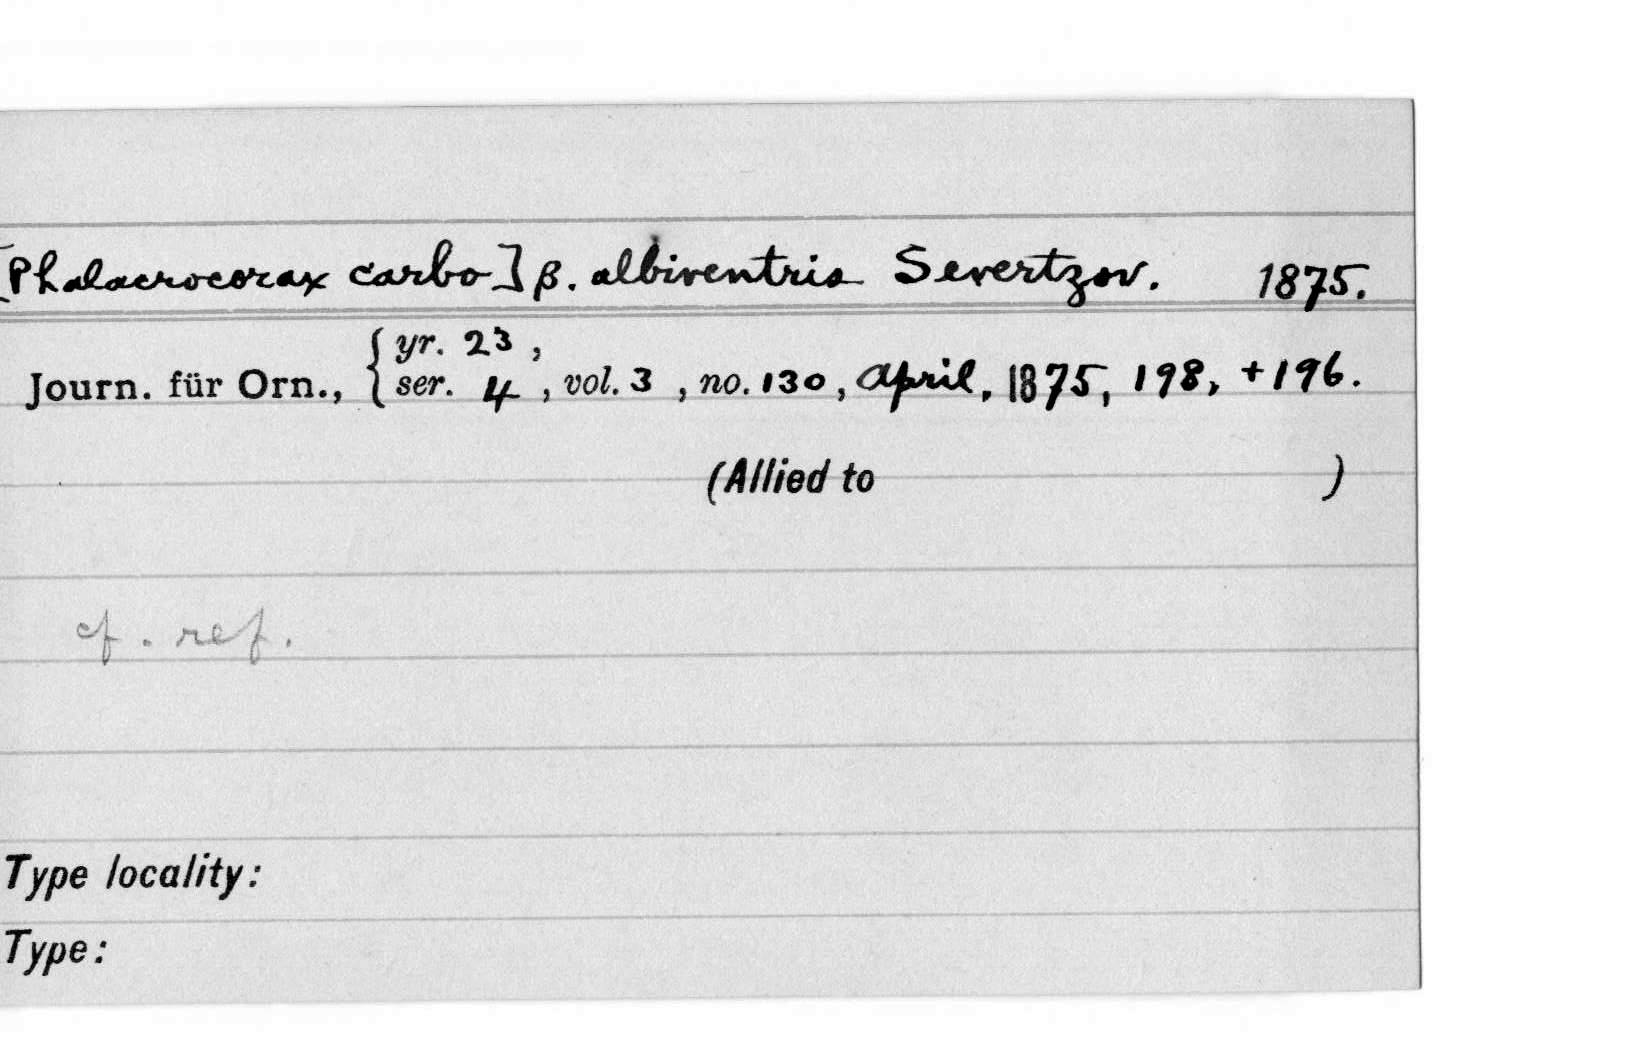 [Phalacrocorax carbo] β. albiventris Severtzov. 1875.
yr. 23,
Journ. für Orn., { ser. 4, vol. 3, no. 130, April, 1875, 198, + 196.
(Allied to )
cf. ref.
Type locality:
Type: